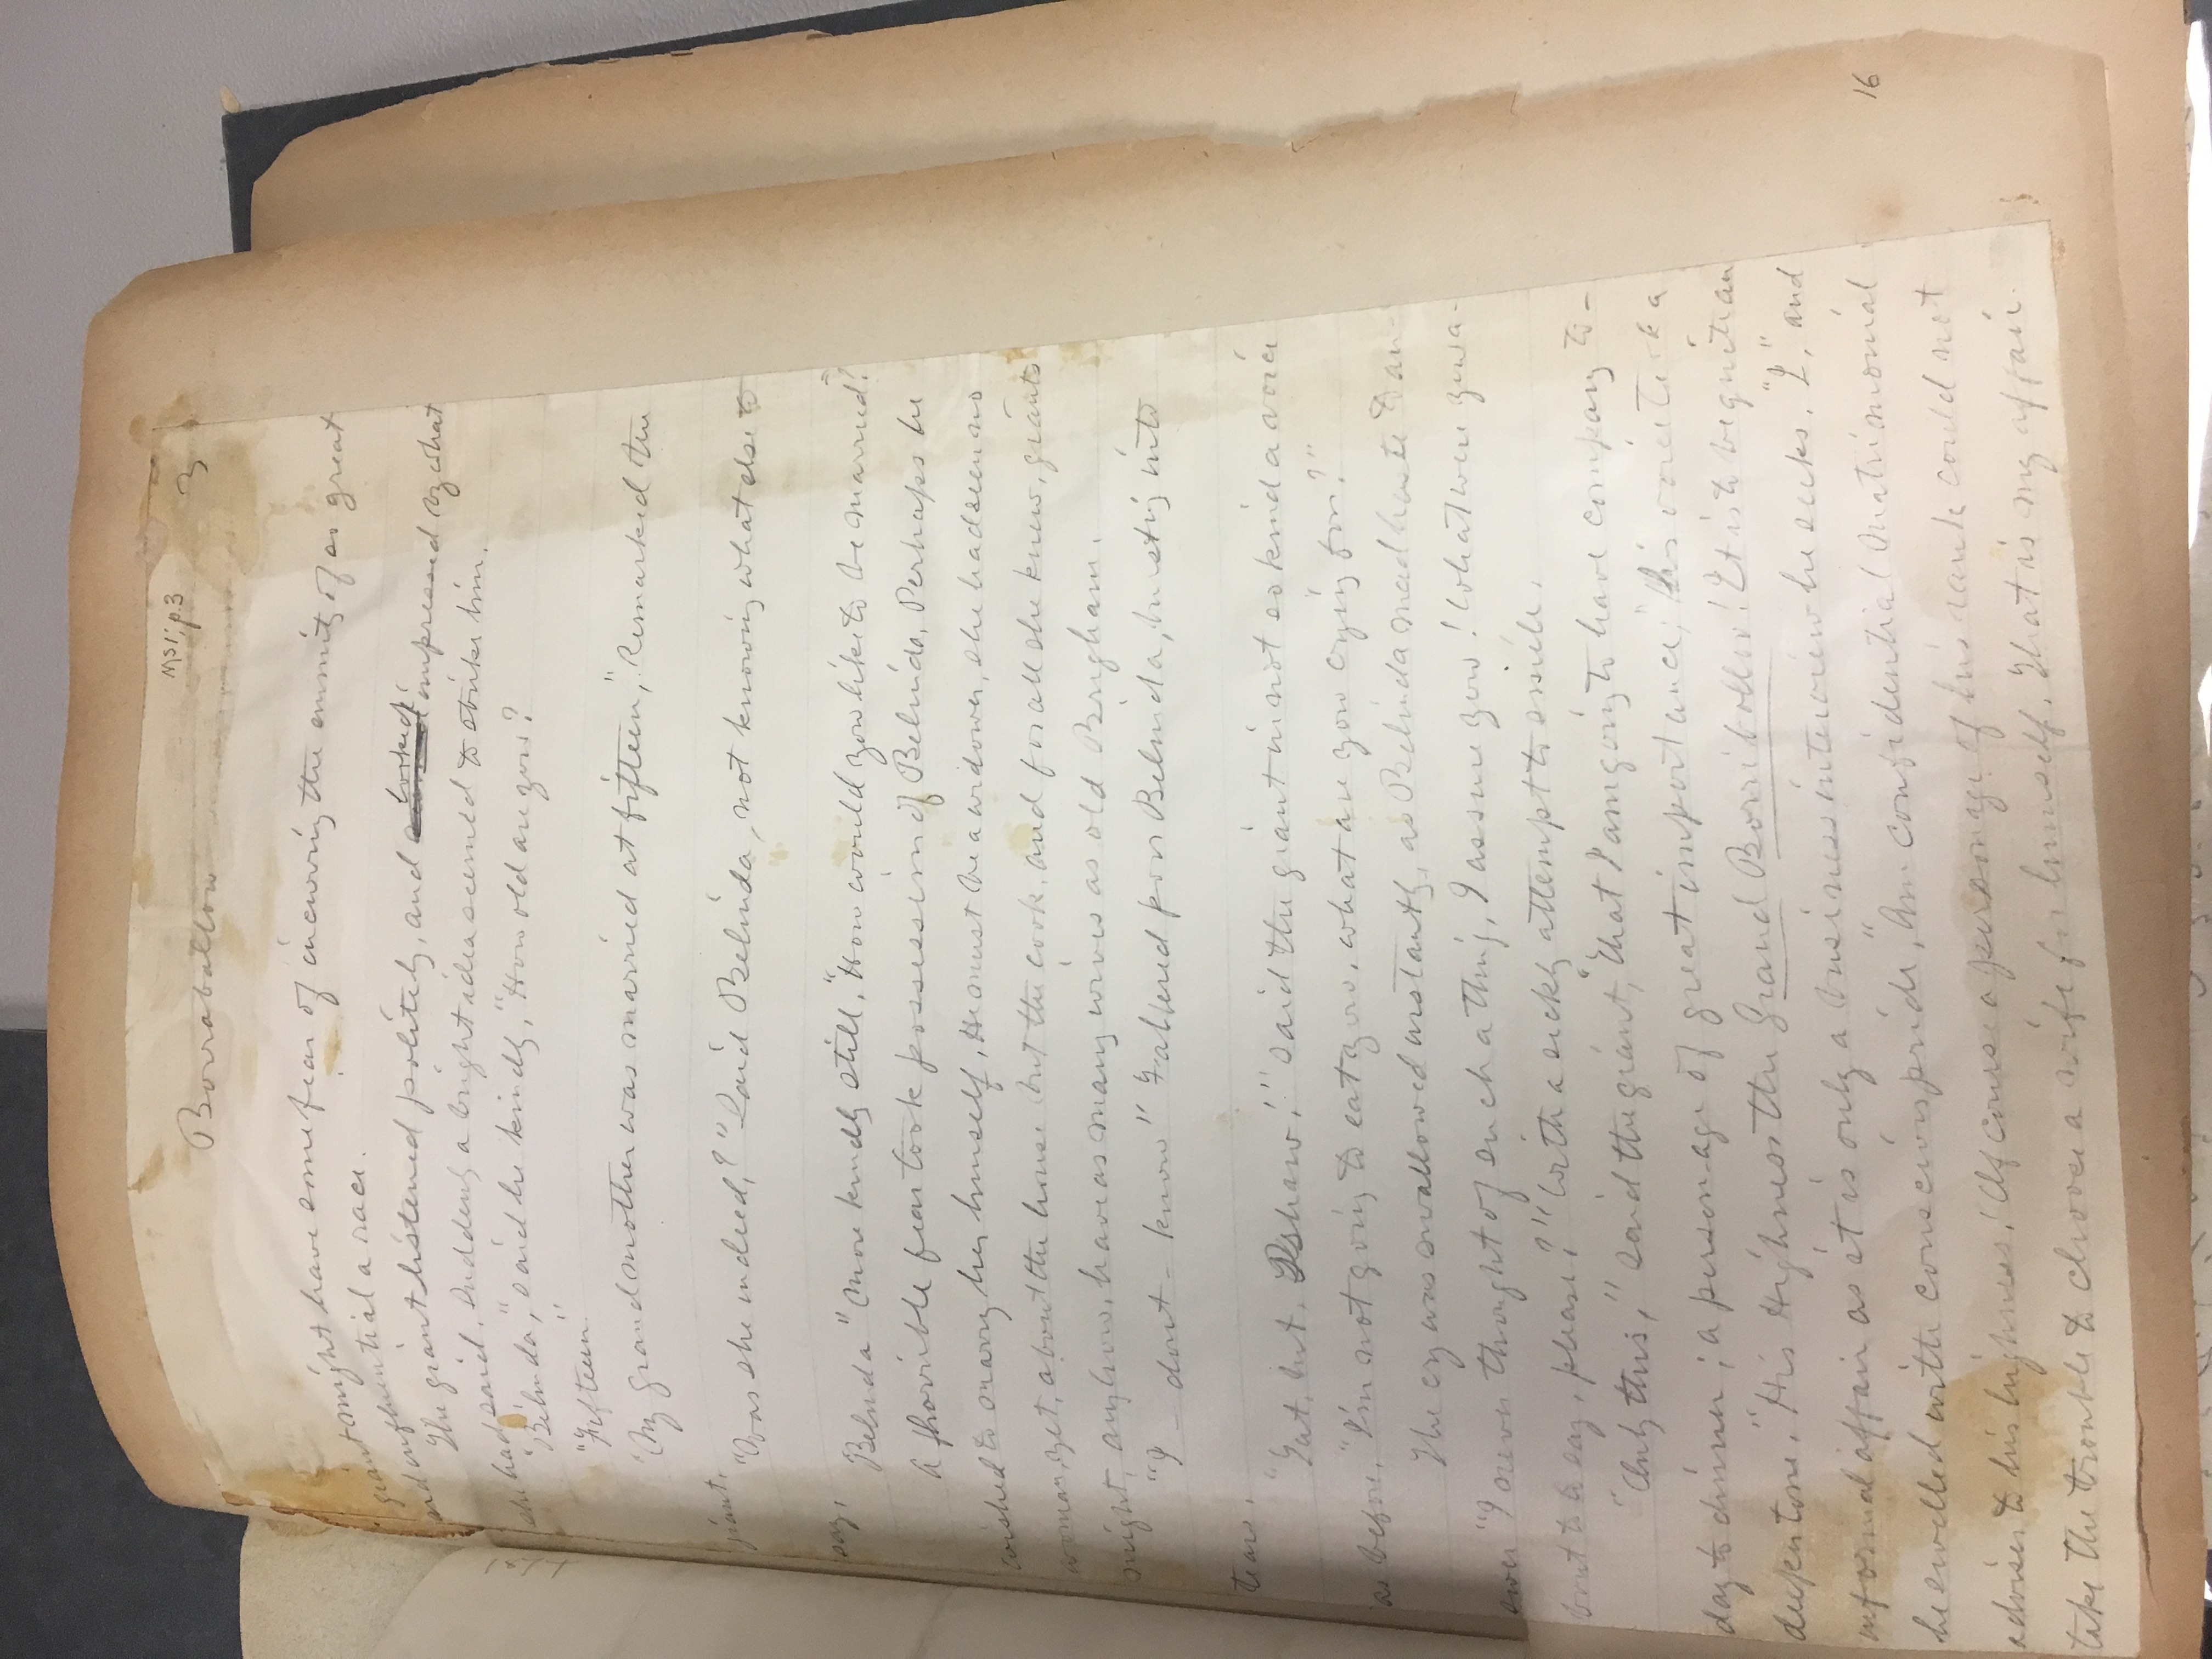 MS1; p.3
3
Borraballow
giant might have some fear of incurring the enmity of so great
and influential a race.
The giant listened politely, and looked impressed by what
she had said. Suddenly a bright idea seemed to strike him.
"Belinda," said he kindly, "How old are you?
"Fifteen."
"My grandmother was married at fifteen," Remarked the
giant.
"Was she indeed,?" Said Belinda, not knowing what else to
say,
Belinda" More kindly still, "How would you like to be married?"
A horrible fear took possession of Belinda. Perhaps he
wished to marry her himself. He must be a widower, she had seen no
woman, yet, about the house but the cook, and for all she knew, giants
might, anyhow, have as many wives as old Brigham.
"I – dont – know" Faltered poor Belinda, bursting into
tears.
"Tut, tut, Pshaw!" Said the giant in not so kind a voice
as before, "I'm not going to eat you, what are you crying for?"
The cry was swallowed instantly, as Belinda mad haste to an-
swer "I never thought of such a thing, I assure you! What were you a-
bout to say, please?" With a sickly attempt to smile.
"Only this," Said the giant, "that I am going to have company to-
day to dinner; a personage of great importance," His voice took a
deeper tone, "His Highness the Grand Borriballoo! It is to be quite an
informal affair as it is only a business interview he seeks. "I," and
he swelled with conscious pride, "Am Confidential Matrimonial
adviser to his highness! Of course a personage of his rank could not
take the trouble to choose a wife for himself. That is my affair.
16